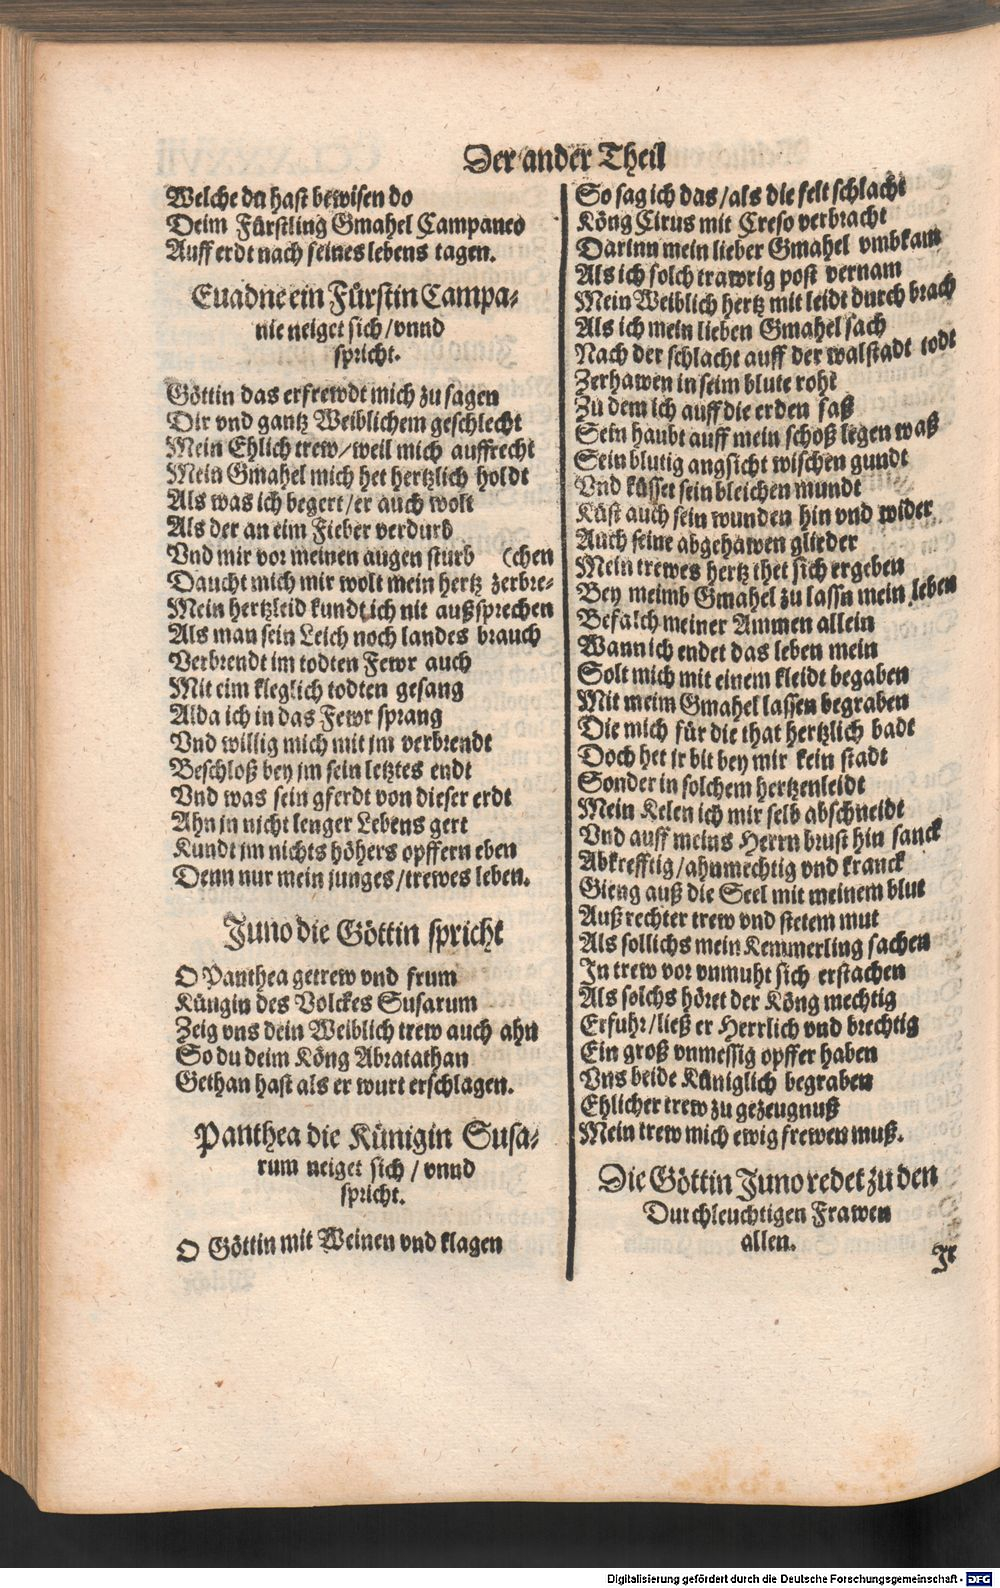 Der ander Theil
Welche du hast bewisen do
Deim Fürstling Gmahel Campaneo
Auff erdt nach seines lebens tagen.
Euadne ein Fürstin Campa-
nie neiget sich / vnnd
spricht.
Göttin das erfrewdt mich zu sagen
Dir vnd gantz Weiblichem geschlecht
Mein Ehlich trew / weil mich auffrecht
Mein Gmahel mich het hertzlich holdt
Als was ich begert / er auch wolt
Als der an eim Fieber verdurb
Vnd mir vor meinen augen sturb (chen
Daucht mich mir wolt mein hertz zerbre-
Mein hertzleid kundt ich nit außsprechen
Als man sein Leich noch landes brauch
Verbrendt im todten Fewr auch
Mit eim kleglich todten gesang
Alda ich in das Fewr sprang
Vnd willig mich mit jm verbrendt
Beschloß bey jm sein letztes endt
Vnd was sein gferdt von dieser erdt
Ahn jn nicht lenger Lebens gert
Kundt jm nichts höhers opffern eben
Denn nur mein junges / trewes leben.
Juno die Göttin spricht
O Panthea getrew vnd frum
Küngin des Volckes Susarum
Zeig vns dein Weiblich trew auch ahn
So du deim Köng Abratathan
Gethan hast als er wurt erschlagen.
Panthea die Künigin Susa-
rum neiget sich / vnnd
spricht.
O Göttin mit Weinen vnd klagen
So sag ich das / als die felt schlacht
Köng Cirus mit Creso verbracht
Darinn mein lieber Gmahel vmbkam
Als ich solch trawrig post vernam
Mein Weiblich hertz mit leidt durch brach
Als ich mein lieben Gmahel sach
Nach der schlacht auff der walstadt todt
Zerhawen in seim blute roht
Zu dem ich auff die erden saß
Sein haubt auff mein schoß legen waß
Sein blutig angsicht wischen gundt
Vnd küsset sein bleichen mundt
Küst auch sein wunden hin vnd wider
Auch seine abgehawen glieder
Mein trewes hertz thet sich ergeben
Bey meimb Gmahel zu lassn mein leben
Befalch meiner Ammen allein
Wann ich endet das leben mein
Solt mich mit einem kleidt begaben
Mit meim Gmahel lassen begraben
Die mich für die that hertzlich badt
Doch het jr bit bey mir kein stadt
Sonder in solchem hertzenleidt
Mein Kelen ich mir selb abschneidt
Vnd auff meins Herrn brust hin sanck
Abkrefftig / ahnmechtig vnd kranck
Gieng auß die Seel mit meinem blut
Auß rechter trew vnd stetem mut
Als sollichs mein Kemmerling sachen
In trew vor vnmuht sich erstachen
Als solchs höret der Köng mechtig
Erfuhr / ließ er Herrlich vnd brechtig
Ein groß vnmessig opffer haben
Vns beide Küniglich begraben
Ehlicher trew zu gezeugnuß
Mein trew mich ewig frewen muß.
Die Göttin Juno redet zu den
Durchleuchtigen Frawen
allen.
Jr
Digitalisierung gefördert durch die Deutsche Forschungsgemeinschaft - DFG